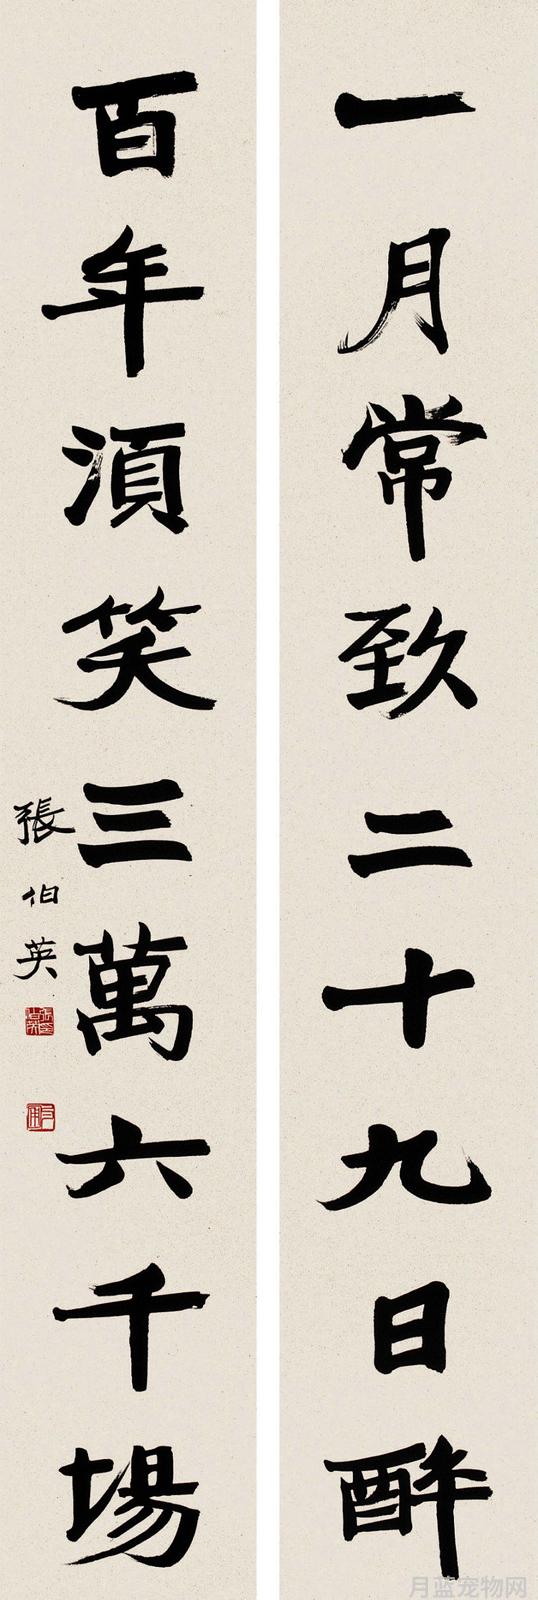 一月常致二十九日醉
百年須笑三萬六千場
張伯英
月蓝宠物网